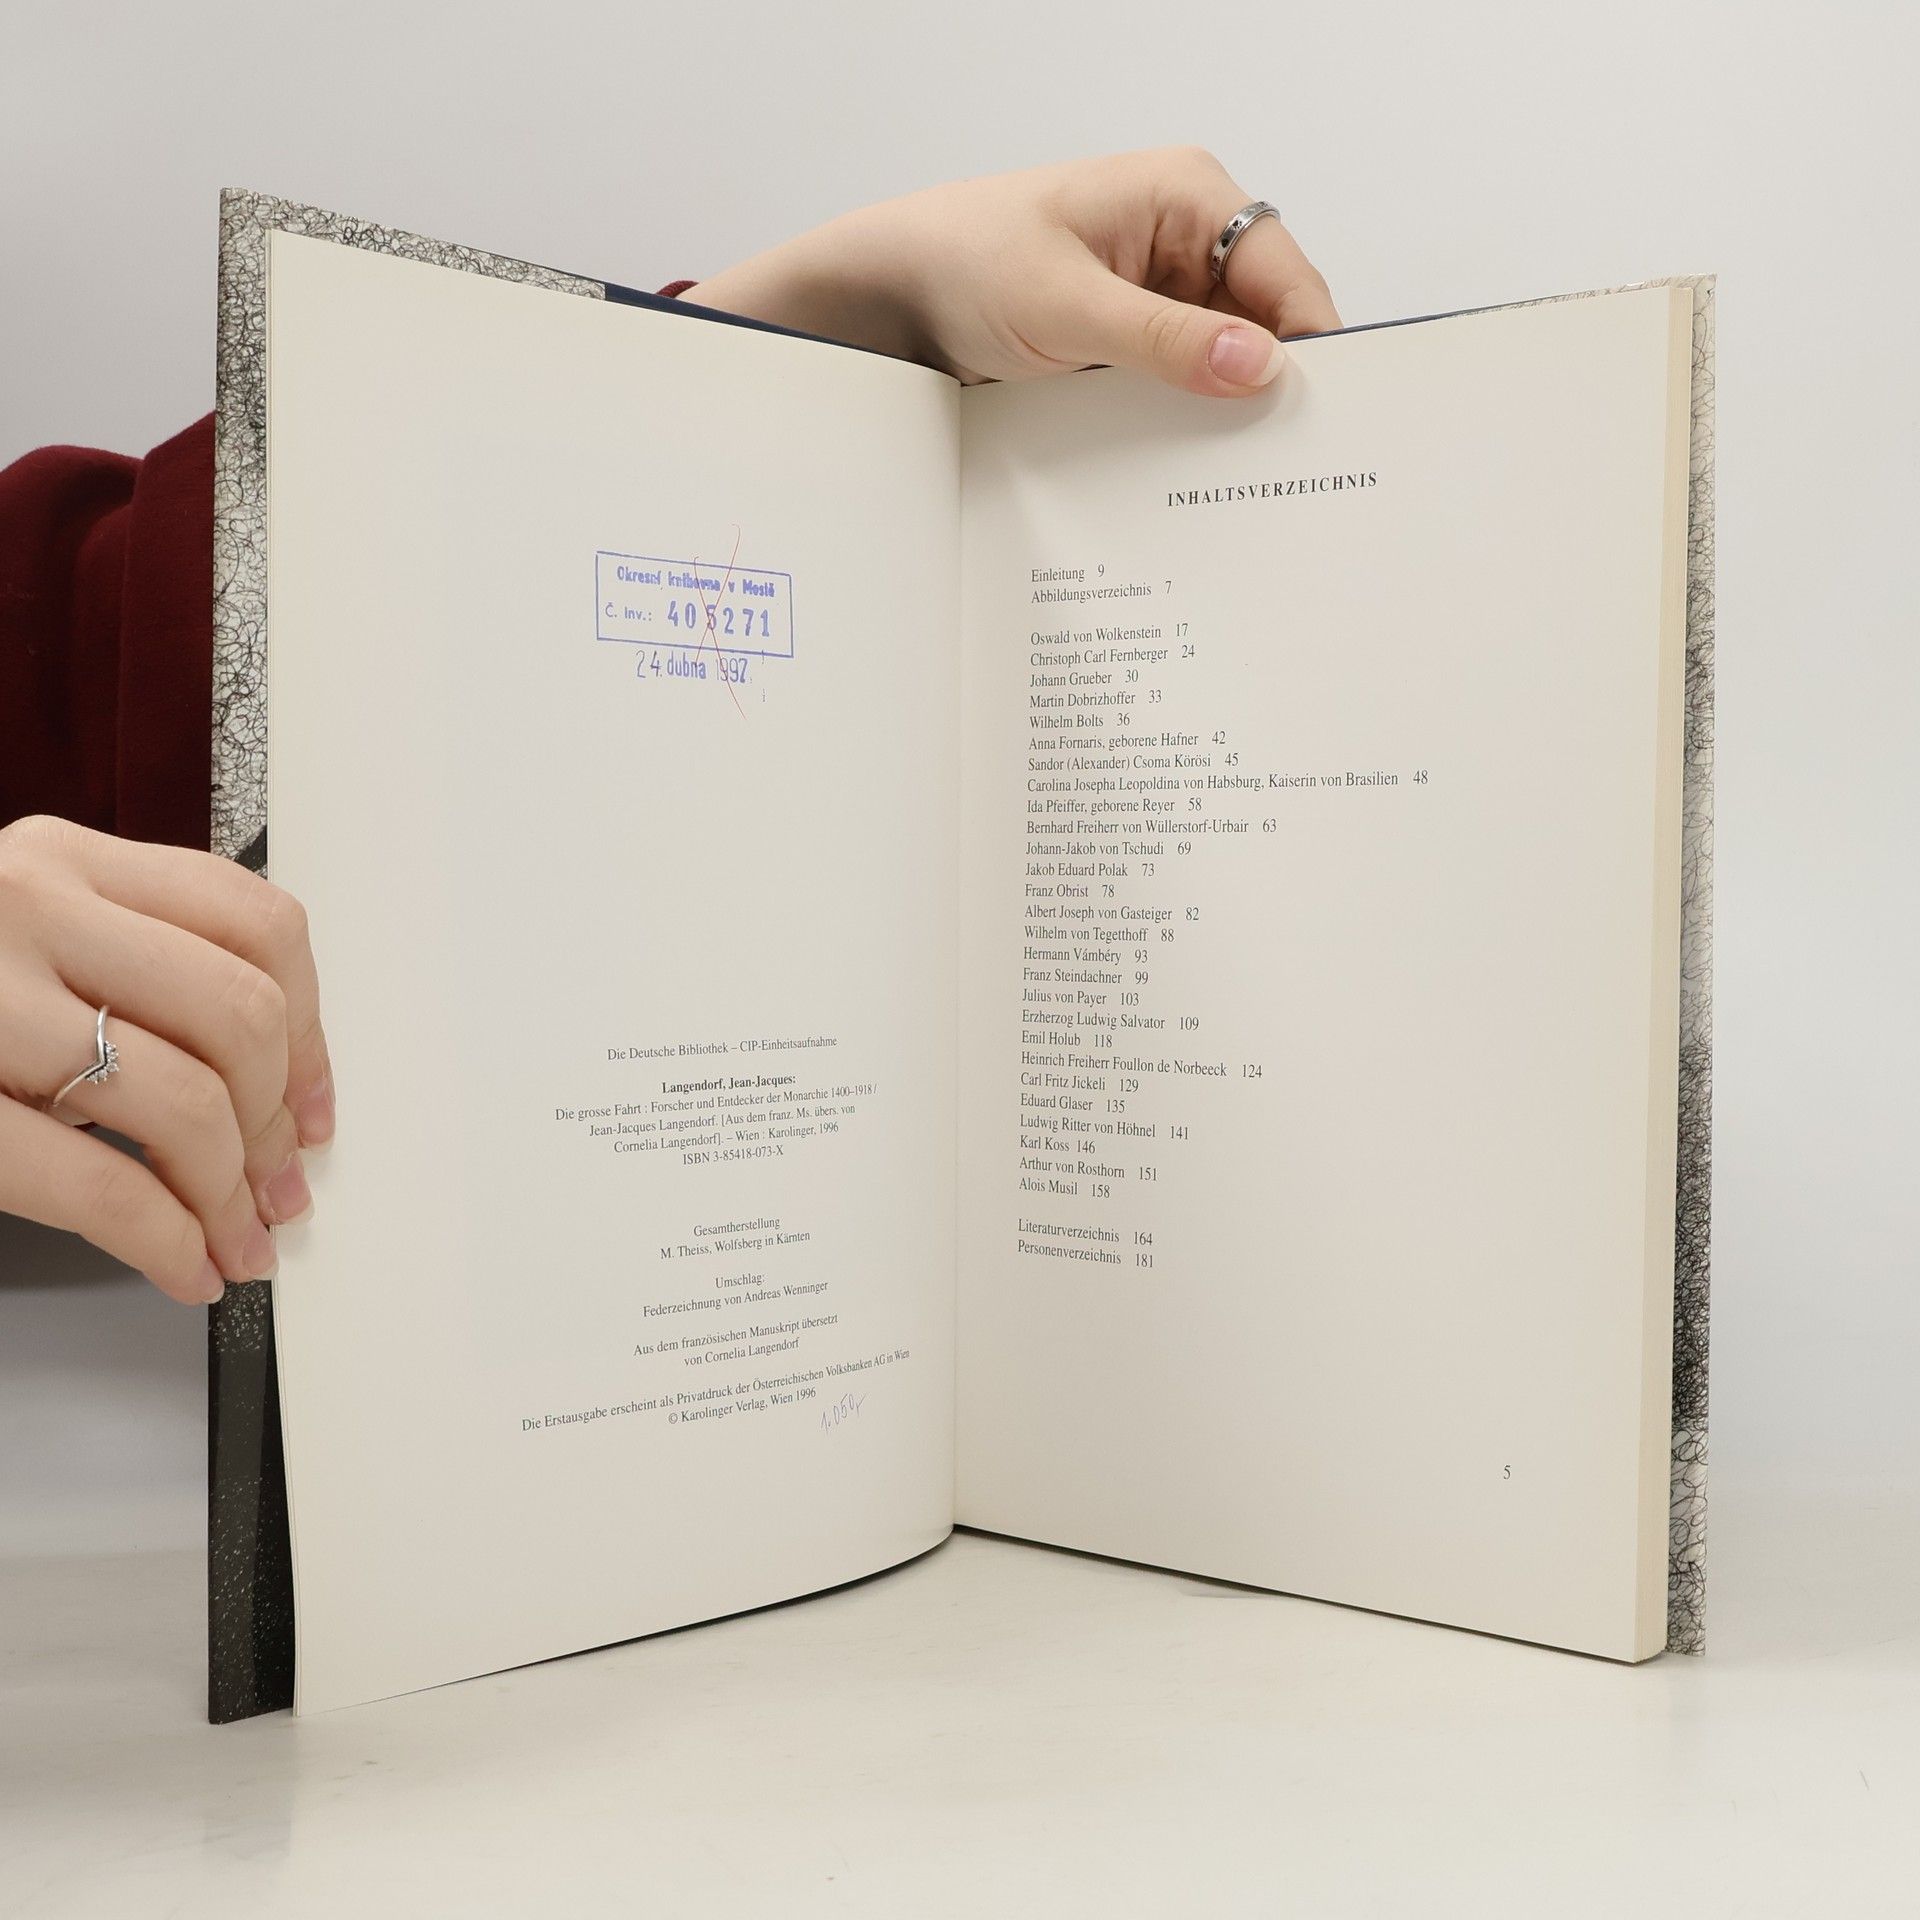 Okresní knihovna v Mostě
Č. Inv.: 405271
24. dubna 1997
Die Deutsche Bibliothek – CIP-Einheitsaufnahme
Langendorf, Jean-Jacques:
Die grosse Fahrt : Forscher und Entdecker der Monarchie 1400–1918 /
Jean-Jacques Langendorf. [Aus dem franz. Ms. übers. von
Cornelia Langendorf]. – Wien : Karolinger, 1996
ISBN 3-85418-073-X
Gesamtherstellung
M. Theiss, Wolfsberg in Kärnten
Umschlag:
Federzeichnung von Andreas Wenninger
Aus dem französischen Manuskript übersetzt
von Cornelia Langendorf
Die Erstausgabe erscheint als Privatdruck der Österreichischen Volksbanken AG in Wien
© Karolinger Verlag, Wien 1996
1.050,-
INHALTSVERZEICHNIS
Einleitung 9
Abbildungsverzeichnis 7
Oswald von Wolkenstein 17
Christoph Carl Fernberger 24
Johann Grueber 30
Martin Dobrizhoffer 33
Wilhelm Bolts 36
Anna Fornaris, geborene Hafner 42
Sandor (Alexander) Csoma Körösi 45
Carolina Josepha Leopoldina von Habsburg, Kaiserin von Brasilien 48
Ida Pfeiffer, geborene Reyer 58
Bernhard Freiherr von Wüllerstorf-Urbair 63
Johann-Jakob von Tschudi 69
Jakob Eduard Polak 73
Franz Obrist 78
Albert Joseph von Gasteiger 82
Wilhelm von Tegetthoff 88
Hermann Vámbéry 93
Franz Steindachner 99
Julius von Payer 103
Erzherzog Ludwig Salvator 109
Emil Holub 118
Heinrich Freiherr Foullon de Norbeeck 124
Carl Fritz Jickeli 129
Eduard Glaser 135
Ludwig Ritter von Höhnel 141
Karl Koss 146
Arthur von Rosthorn 151
Alois Musil 158
Literaturverzeichnis 164
Personenverzeichnis 181
5